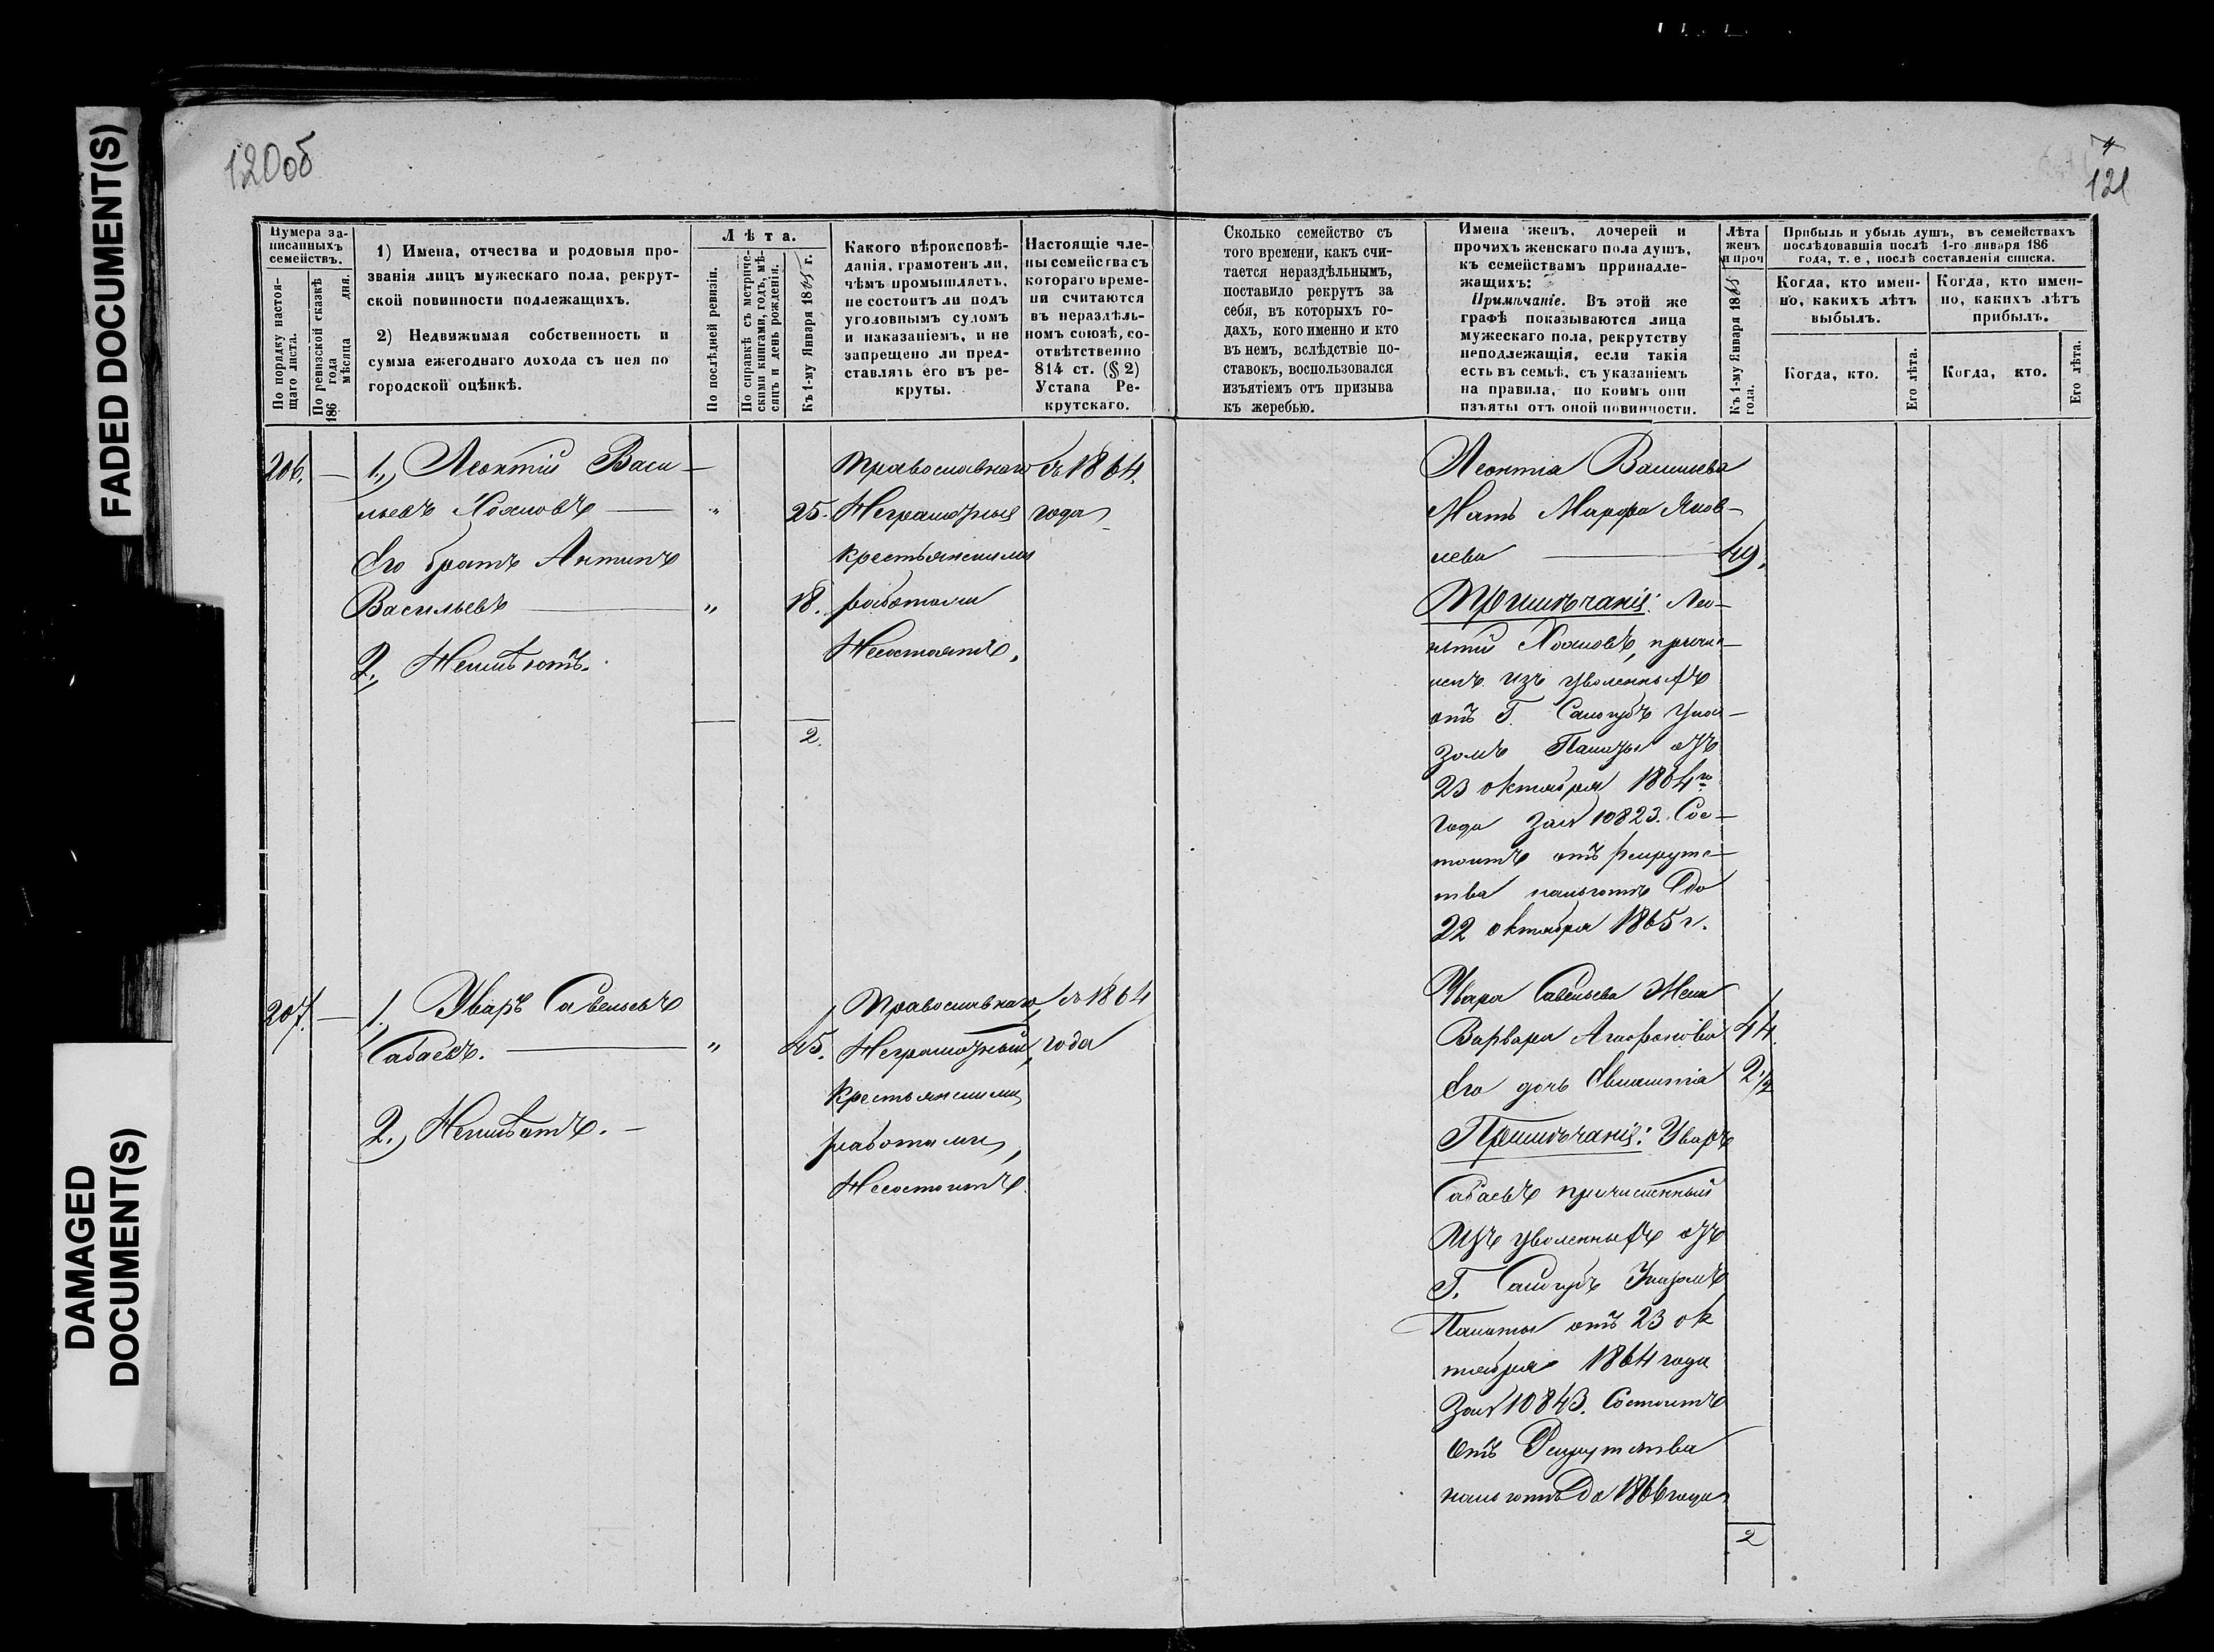 FADED DOCUMENT(S)
DAMAGED
DOCUMENT(S)
120об
121
Нумера за-
писанныхъ
семействъ.
По порядку настоя-
щаго листа.
По ревизской сказкѣ
186 года
мѣсяца дня.
1) Имена, отчества и родовыя про-
званія лицъ мужескаго пола, рекрут-
ской повинности подлежащихъ.
2) Недвижимая собственность и
сумма ежегоднаго дохода съ нея по
городской оцѣнкѣ.
Лѣта.
По послѣдней ревизіи.
По справкѣ съ метриче-
скими книгами, годъ, мѣ-
сяцъ и день рожденія.
Къ 1-му Января 1865 г.
Какого вѣроисповѣ-
данія, грамотенъ ли,
чѣмъ промышляетъ,
не состоитъ ли подъ
уголовнымъ судомъ
и наказаніемъ, и не
запрещено ли пред-
ставлять его въ ре-
круты.
Настоящіе чле-
ны семейства съ
котораго време-
ни считаются
въ нераздѣль-
номъ союзѣ, со-
отвѣтственно
814 ст. (§ 2)
Устава Ре-
крутскаго.
Сколько семейство съ
того времени, какъ счи-
тается нераздѣльнымъ,
поставило рекрутъ за
себя, въ которыхъ го-
дахъ, кого именно и кто
въ немъ, вслѣдствіе по-
ставокъ, воспользовался
изъятіемъ отъ призыва
къ жеребью.
Имена женъ, дочерей и
прочихъ женскаго пола душъ,
къ семействамъ прринадле-
жащихъ:
Примѣчаніе. Въ этой же
графѣ показываются лица
мужескаго пола, рекрутству
неподлежащія, если такія
есть въ семьѣ, съ указаніемъ
на правила, по коимъ они
изъяты отъ оной повинности.
Лѣта
женъ
и проч
Къ 1-му Января 1865
года.
Прибыль и убыль душъ, въ семействахъ
послѣдовавшія послѣ 1-го января 186
года, т. е, послѣ составленія списка.
Когда, кто имен-
но, какихъ лѣтъ
выбылъ.
Когда, кто имен-
но, какихъ лѣтъ
прибылъ.
Когда, кто.
Его лѣта.
Когда, кто.
Его лѣта.
206. — 1., Леонтій Васи — Православнаго съ 1864.
льевъ — " 25. Неграмотныя года
Его братъ Антипъ крестьянскими
Васильевъ — " 18. работами
2., Неимѣютъ. Несостоятъ.
2.
Леонтія Васильева
Мать Марфа Яков-
лева — 49.
Примѣчаніе: Лео-
нтій причи-
ленъ изъ уволенныхъ
отъ Г. Сологубъ Ука-
зомъ Палаты отъ
23 октября 1864го
года за № 10823. Сос-
тоитъ отъ рекрутс-
тва нальготѣ до
22 октября 1865 г.
207. — 1., Уваръ Савельевъ Православнаго, съ 1864
Сабаевъ. — " 45. Неграмотный, года
крестьянскими
2., Неимѣетъ. — работами,
Несостоитъ.
Увара Савельева Жена
Варвара 44.
Его дочь 2 1/2
Примѣчаніе: Уваръ
Сабаевъ причисленный
Изъ уволенныхъ отъ
Г. Сологубъ Указомъ
Палаты отъ 23 ок
тября 1864 года
За № 10843. Состоитъ
Отъ Рекрутства
нальготѣ до 1866 года
2